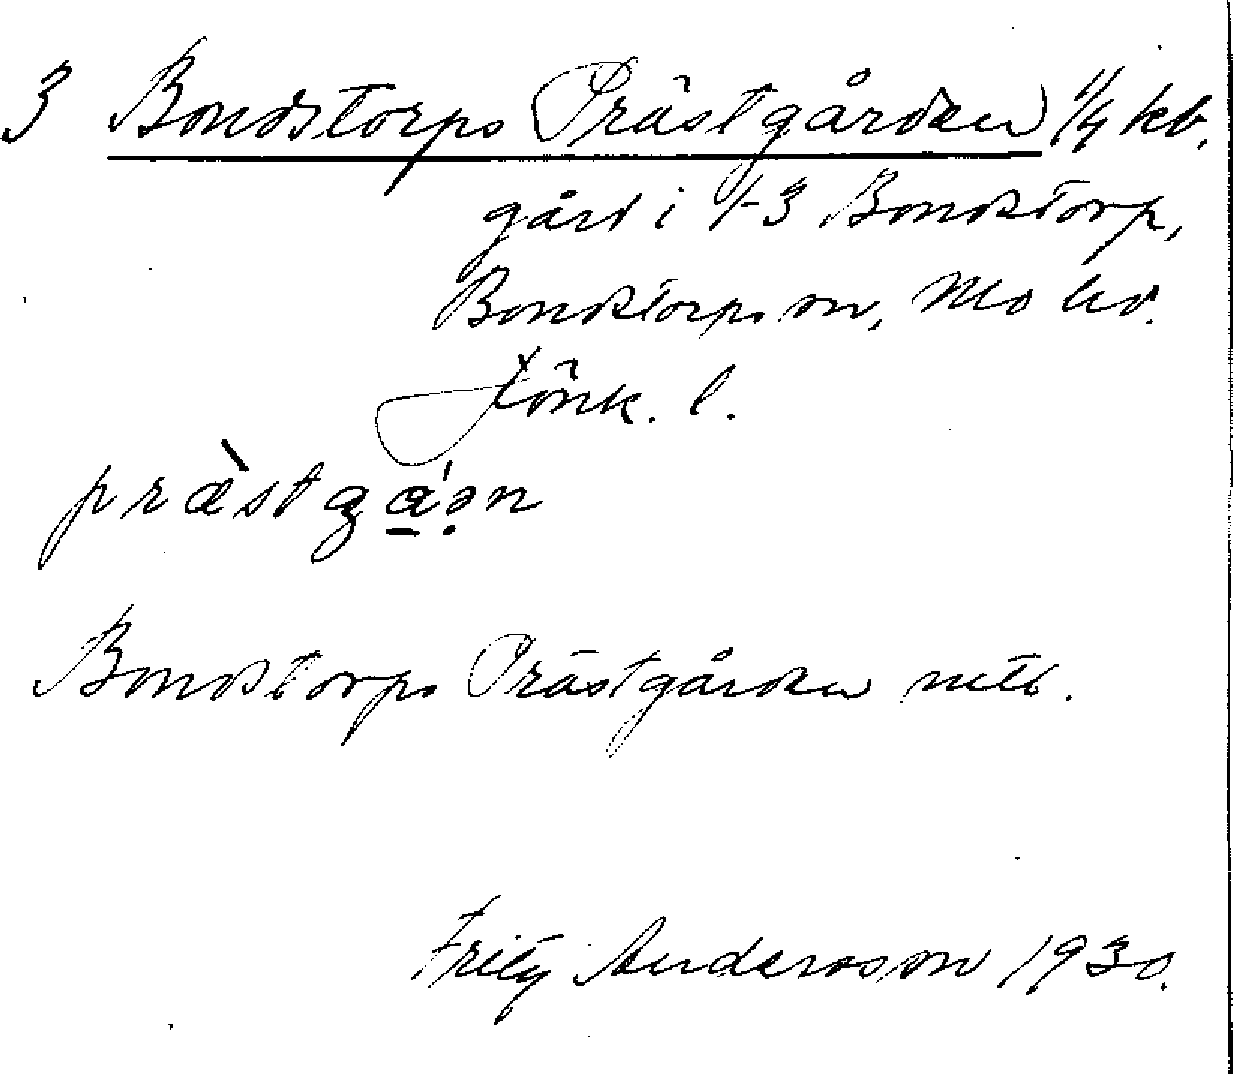 3 Bondstorps Prästgården 1/4 kb.
gård i 1-3 Bondstorp,
Bondstorps sn, Mo hd.
Jönk. l.
præ̀stgá̱ə̣n
Bondstorps Prästgården mtl.
Fritz Andersson 1930.